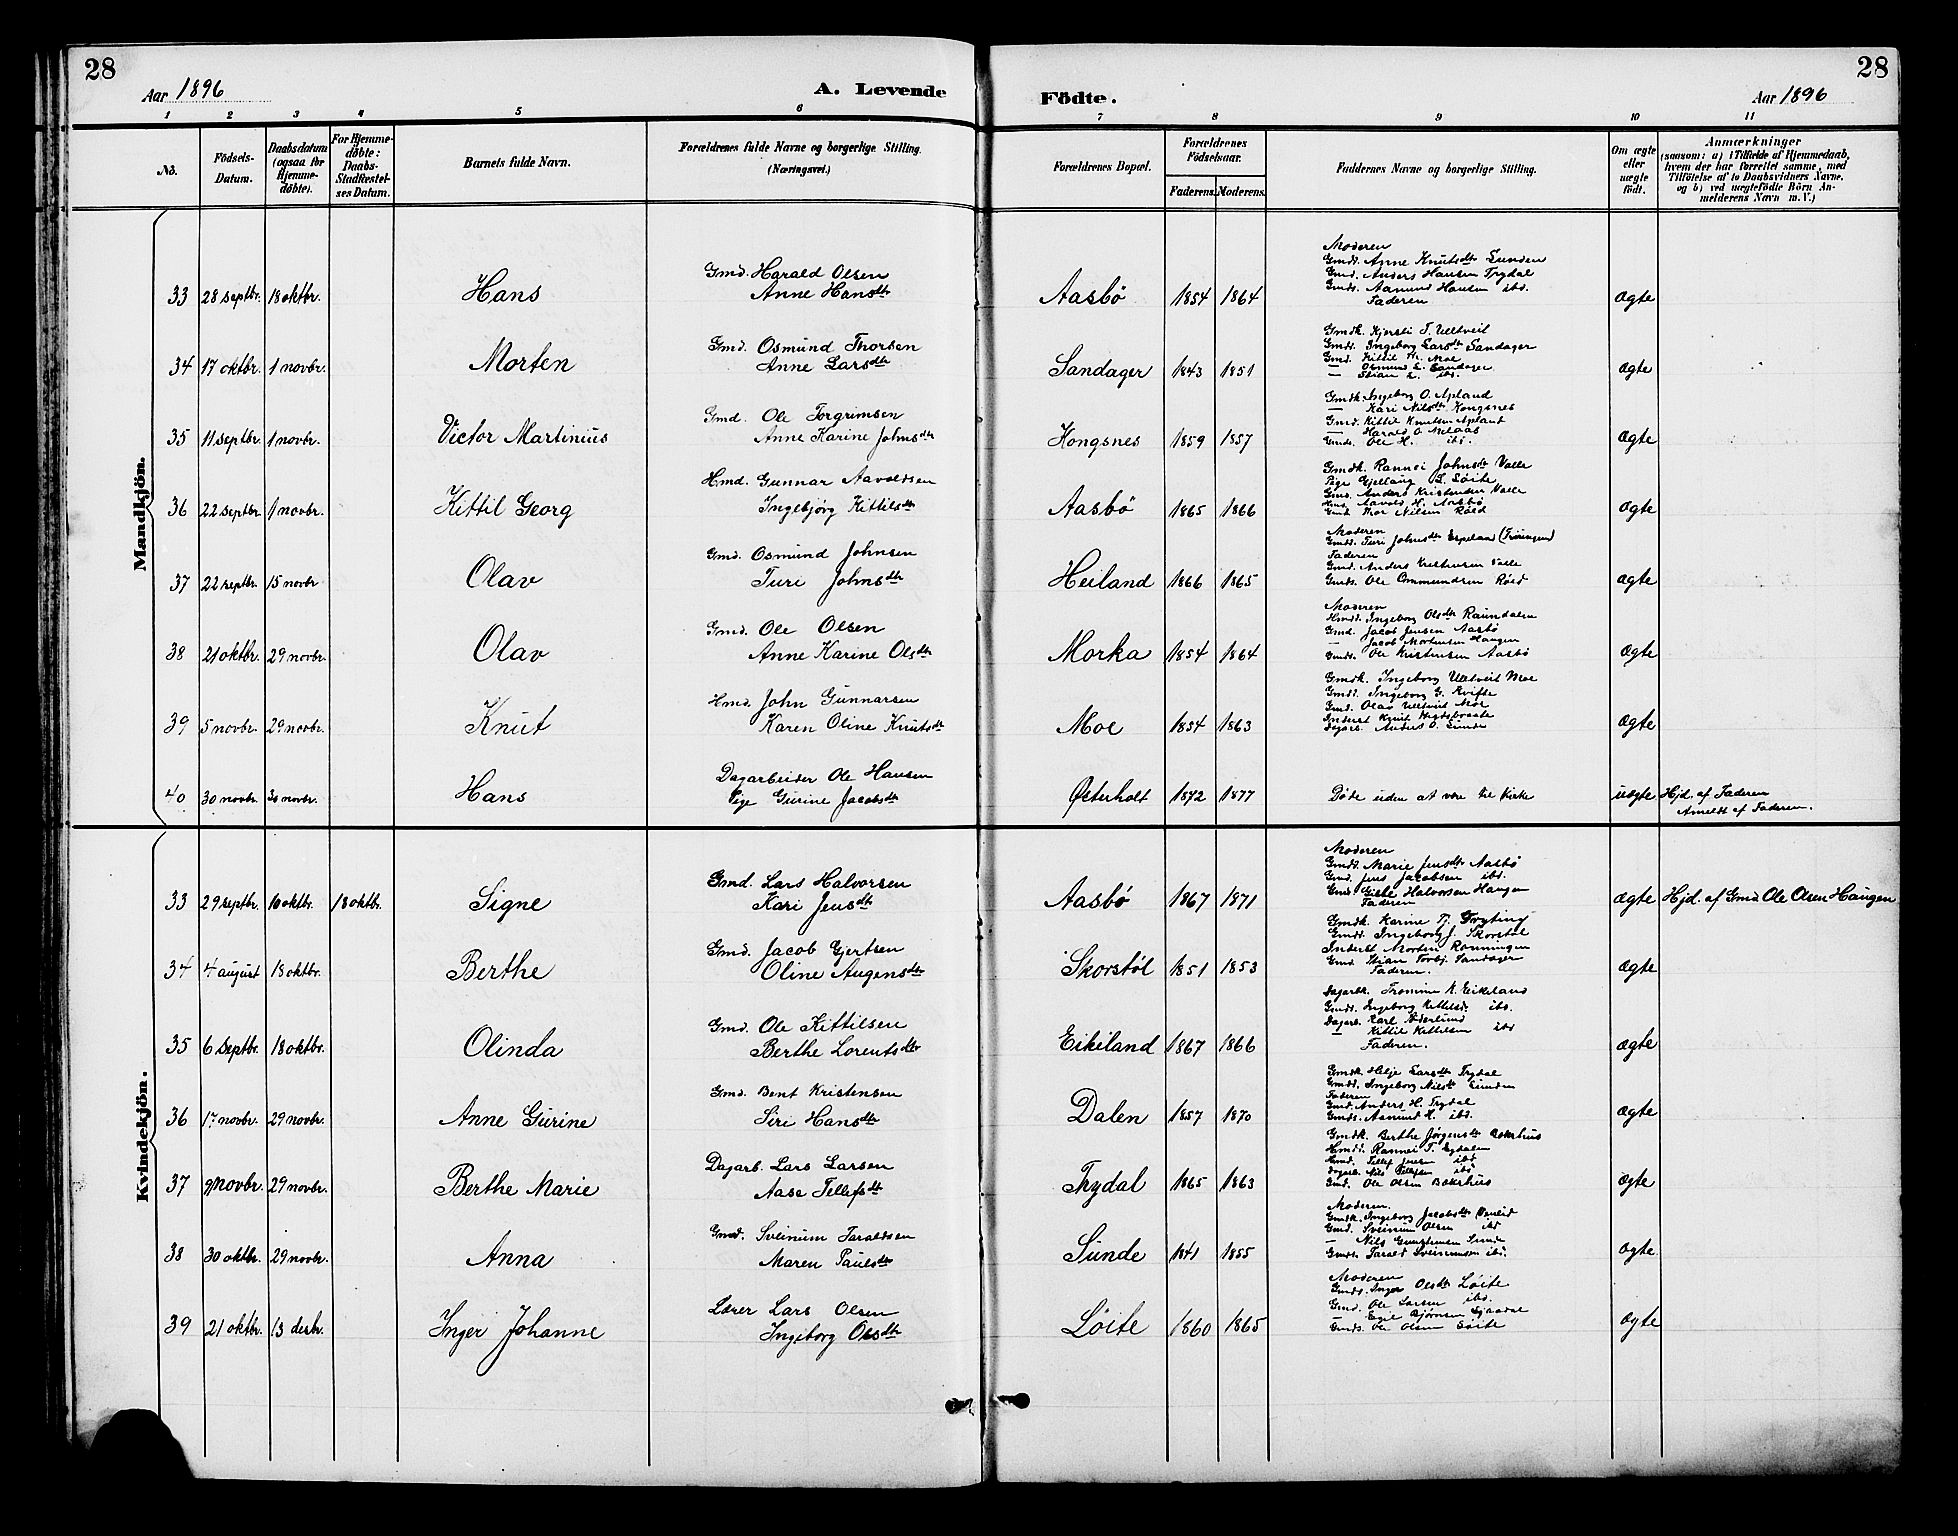 28
Aar 1896
A. Levende Födte.
28
Aar 1896
1 2 3 4 5 6 7 8 9 10 11
No.
Födsels-Datum.
Daabsdatum (ogsaa for Hjemme-döbte).
For Hjemme-döbte: Daabs-Stadfæstel-ses Datum.
Barnets fulde Navn.
Forældrenes fulde Navne og borgerlige Stilling. (Næringsvei.)
Forældrenes Bopæl.
Forældrenes Födselsaar.
Faderens. Moderens.
Faddernes Navne og borgerlige Stilling.
Om ægte eller uægte födt.
Anmærkninger
(saasom: a) i Tilfælde af Hjemmedaab, hvem der har forrettet samme, med Tilföielse af to Daabsvidners Navne, og b) ved uægtefödte Börn An-melderens Navn m. V.)
Mandkjön.
33 28 septbr. 18 oktbr. Hans Gmd. Harald Olsen
Anne Hansdtr Aasbö 1854 1864 ægte
Moderen
Gmdd. Anne Knutsdtr Sunden
Gmd. Anders Hansen Trydal
Gmds. Aamund Hansen ibd.
Faderen
34 17 oktbr. 1 novbr. Morten Gmd. Osmund Thorsen
Anne Larsdtr Sandager 1843 1851 ægte
Gmdk. Kjersti T. Ulltveit
Gmdd. Ingeborg Larsdtr Sandager
Gmd. Kittil Th. Moe
— Osmund L. Sandager
— Stian L. ibd.
35 11 septbr. 1 novbr. Victor Martinius Gmd. Ole Torgrimsen
Anne Karine Johnsdtr Kongsnes 1859 1857 ægte
Gmdk. Ingeborg O. Apland
— Kari Nilsdtr Kongsnes
Gmd. Kittil Knutsen Apland
— Harald O. Melaas
Gmds. Ole H. ibd.
36 22 septbr. 1 novbr. Kittil Georg Hmd. Gunnar Aavoldsen
Ingebjörg Kittilsdtr Aasbö 1865 1866 ægte
Gmdk. Rannei Johnsdtr Valle
Pige Gjellaug L. Løite
Gmd. Anders Kristensen Valle
Hmd. Aavold H. Aasbö
Gmd. Thor Nilsen Röed
37 22 septbr 15 novbr Olav Gmd. Osmund Johnsen
Turi Johnsdtr Heiland 1866 1865 ægte
Moderen
Gmdd. Turi Johnsdtr Espeland
Faderen
Gmd. Anders Kristensen Valle
Gmds. Ole Ommundsen Röed
38 21 oktbr. 29 novbr. Olav Gmd. Ole Olsen
Anne Karine Olsdtr Morka 1854 1864 ægte
Moderen
Hmdd. Ingeborg Olsdtr Raundalen
Gmd. Jacob Jensen Aasbö
— Jacob Mortensen Haugen
Gmds. Ole Kristensen Aasbö
39 5 novbr. 29 novbr. Knut Hmd. John Gunnarsen
Karen Oline Knutsdtr Moe 1854 1863 ægte
Gmdk. Ingeborg Ulltveit Moe
Gmdd. Ingeborg G. Kvifte
Gmd. Olav Ulltveit Moe
Inderst Knut
Dagarb. Anders O. Sunde
40 30 novbr. 30 novbr. Hans Dagarbeider Ole Hansen
Pige Gurine Jacobsdtr Østerholt 1872 1877 Døde uden at være til Kirke uægte Hjd. af Faderen
Anmeldt af Faderen.
Kvindekjön.
33 29 septbr. 10 oktbr. 18 oktbr. Signe Gmd. Lars Halvorsen
Kari Jensdtr Aasbö 1867 1871 ægte Hjd. af Gmd Ole Olsen Haugen
Moderen
Gmdd. Marie Jensdtr Aasbö
Gmd. Jens Jacobsen ibd.
Gmd. Gisle Halvorsen Haugen
Faderen
34 4 august 18 oktbr. Berthe Gmd. Jacob Gjertsen
Oline Augensdtr Skorstöl 1851 1853 ægte
Gmdk. Karine Tj. Gryting
Gmdd. Ingeborg J. Skorstöl
Inderst Morten Rønningen
Gmd Stian Torbj. Sandager
Faderen.
35 6 septbr. 18 oktbr. Olinda Gmd. Ole Kittilsen
Berthe Lorentsdtr Eikeland 1867 1866 ægte
Dagarbk. Tromine K. Eikeland
Gmdd. Ingeborg Kittelsd. ibd.
Dagarb. Karl Söderlund
— Kittil Kittelsen ibd
Faderen.
36 17 novbr. 29 novbr. Anne Gurine Gmd. Bent Kristensen
Siri Hansdtr Dalen 1857 1870 ægte
Gmdk. Helje Larsdtr Trydal
Gmdd. Ingeborg Nilsdt Sunden
Faderen
Gmd. Anders H. Trydal
Gmds. Aamund H. ibd.
37 9 novbr. 29 novbr. Berthe Marie Dagarb. Lars Larsen
Aase Tellefsdt Trydal 1865 1863 ægte
Gmdk. Berthe Jørgensdt Bokerhus
Hmdd. Rannei T. Trydalen
Hmd. Tellef Jensen ibd
Dagarb. Nils Tellefsen ibd
Gmd. Ole Olsen Bokerhus
38 30 oktbr. 29 novbr. Anna Gmd. Sveinum Taraldsen
Maren Paulsdtr Sunde 1841 1855 ægte
Moderen.
Gmdk. Ingeborg Jacobsdtr
Gmd. Sveinum Olsen ibd
— Nils Gundersen Sunde
Gmds. Tarald Sveinumsen ibd.
39 21 oktbr. 13 desbr. Inger Johanne Lærer Lars Olsen
Ingeborg Olsdtr Løite 1860 1865 ægte
Moderen
Gmdd. Inger Olsdtr Løite
Gmd. Ole Larsen ibd.
— Egil Bjørnsen
Gmds. Ole Olsen Løite